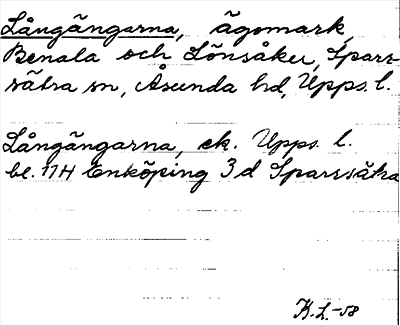 Långängarna, ägomark,
Benala och Lönsåker, Spars-
sätra sn, Åsunda hd, Upps. l.
Långängarna, ek. Upps. l.
bl. 114 Enköping 3d Sparrsätra
K.L.-58